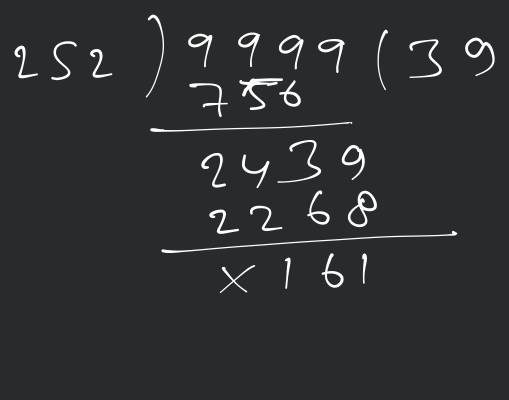 252 ) 9999 ( 39
756
2439
2268
×161